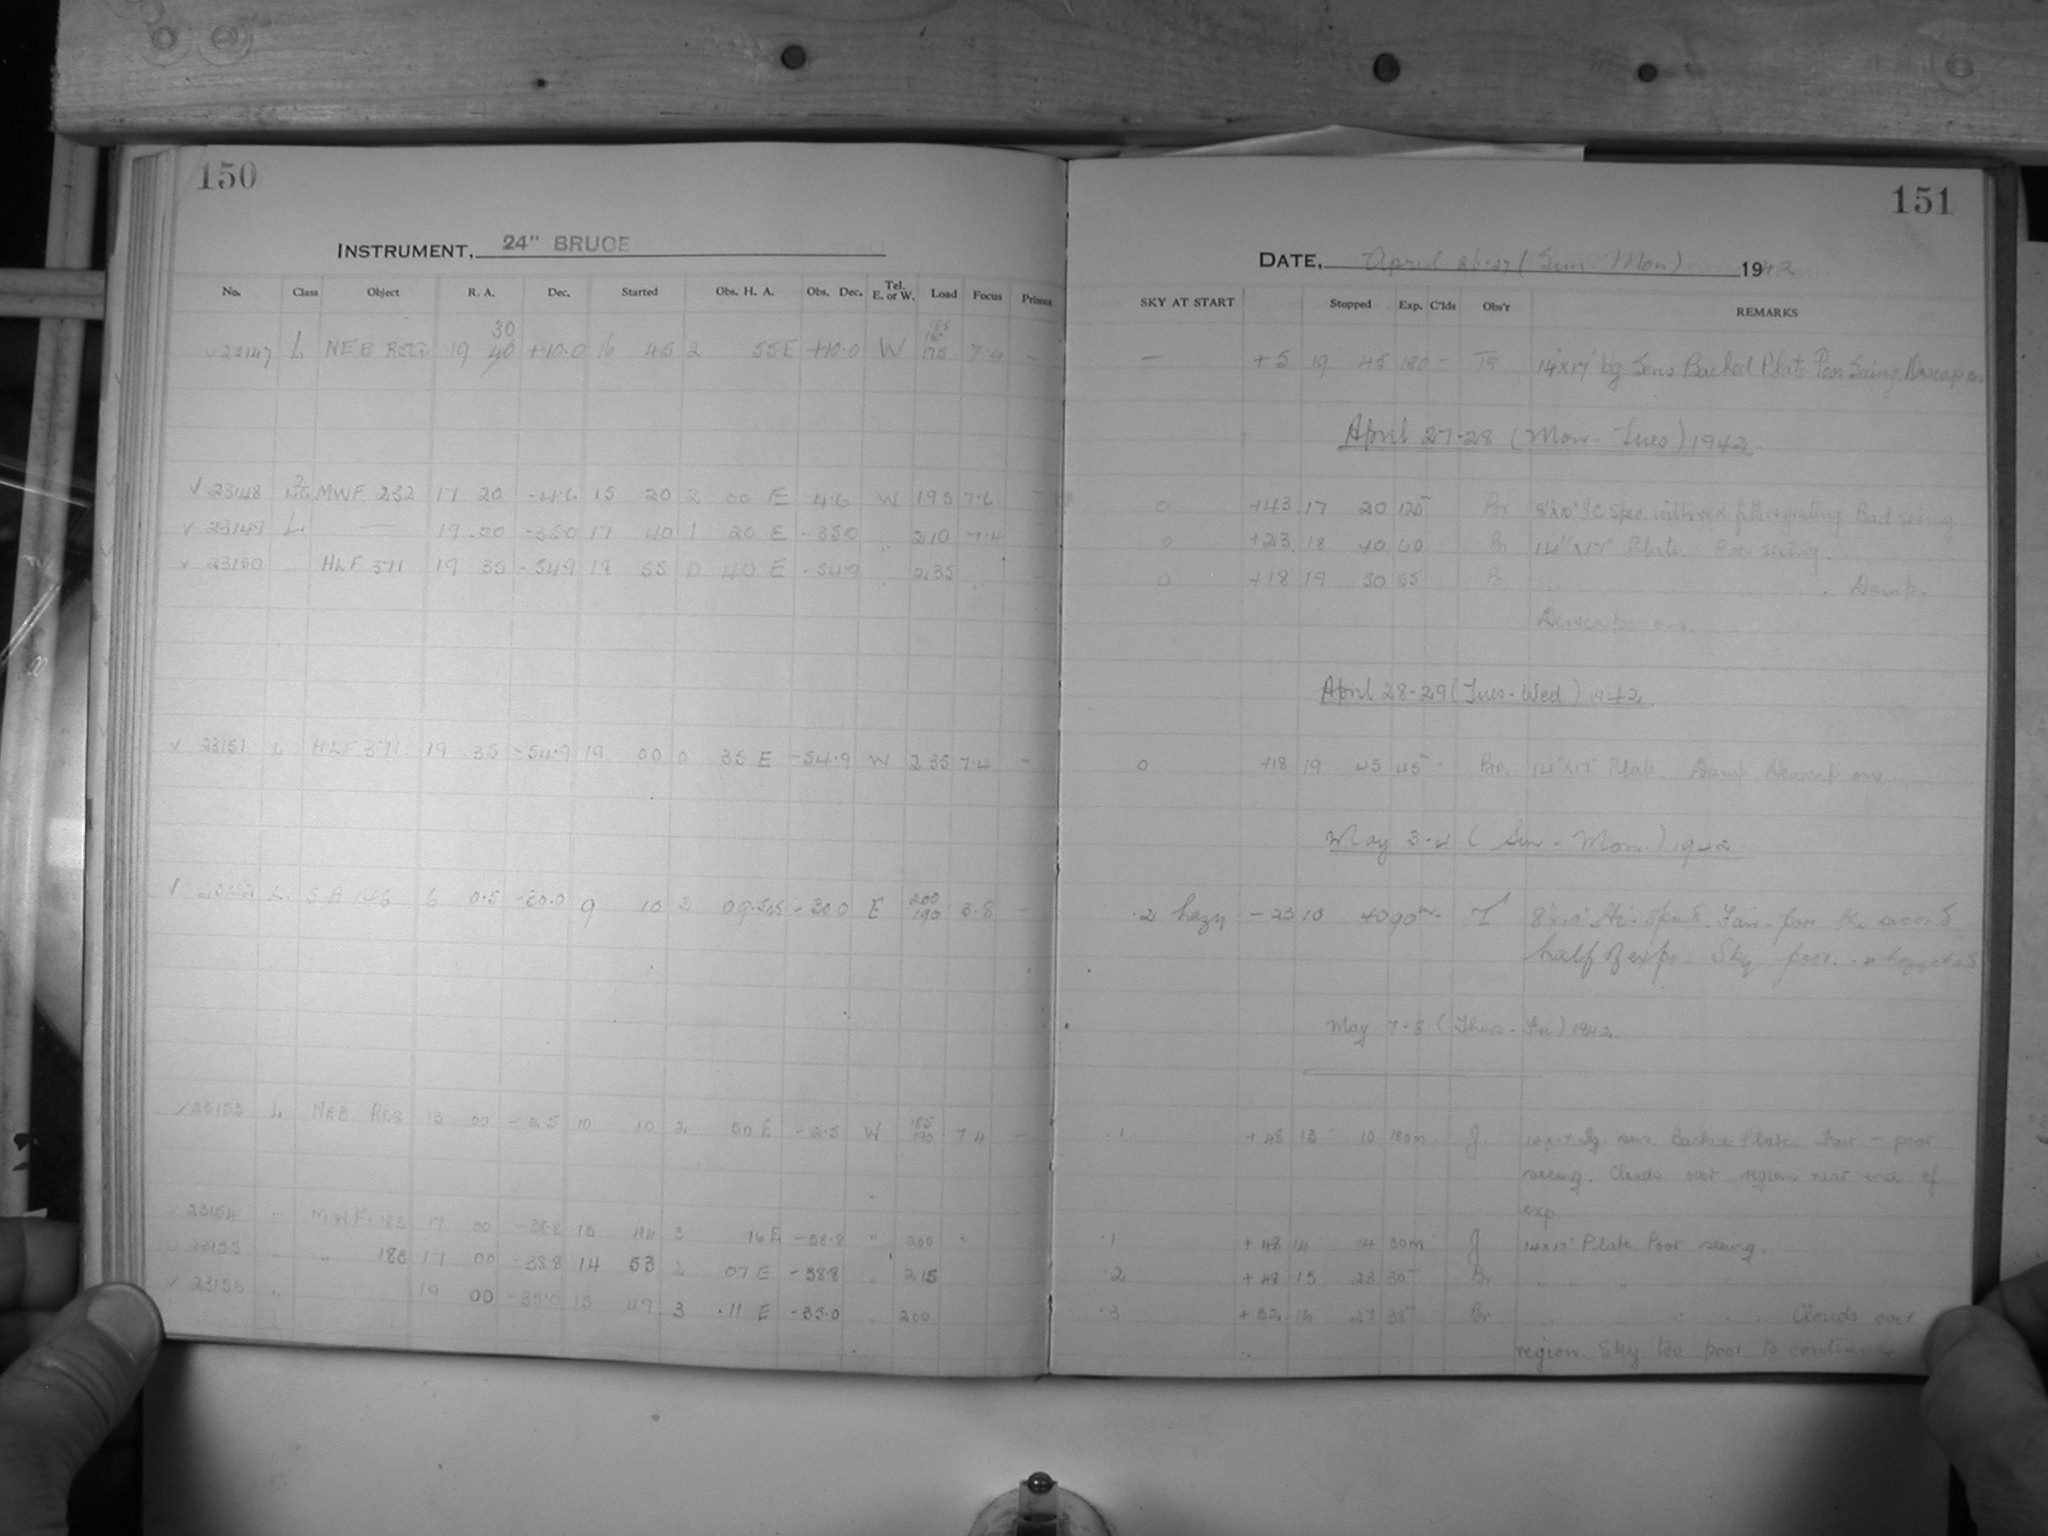 150
INSTRUMENT, 24" BRUCE
No. Class Object R. A. Dec. Started Obs. H. A. Obs. Dec. Tel. E. or W. Load Focus Prisms
30
23147 L NEB REG 19 40 +10.0 16 45 2 55 E +10.0 W 175 7.4 -
✓ 23148 MWF 232 17 20 -4.6 15 20 2 00 E -4.6 W 195 7.6 -
✓ 23149 L — 19 00 -35.0 17 40 1 20 E -35.0 " 210 7.4
✓ 23150 " HLF 311 19 35 -54.9 18 55 0 40 E -54.9 " 235 "
✓ 23151 L HLF 311 19 35 -54.9 19 00 0 35 E -54.9 W 235 7.4 -
✓ 23152 L S A 146 6 0.5 -30.0 9 10 3 09.5 -30.0 E 200 190 3.8 -
✓ 23153 L NEB. REG 13 00 -2.5 10 10 2 50 E -2.5 W 185 190 7.4 -
✓ 23154 " M.W.F. 183 17 00 -38.8 13 44 3 16 E -38.8 " 200 "
✓ 23155 " " 183 17 00 -38.8 14 53 2 07 E -38.8 " 215
✓ 23156 " 19 00 -35.0 15 49 3 .11 E -35.0 " 200
151
DATE, April 26-27 (Sun-Mon) 1942
SKY AT START Stopped Exp. C'lds Obs'r REMARKS
— +5 19 45 180 - 14"x17" bg Sens Backed Plate Poor Seeing. Dewcap on
April 27-28 (Mon-Tues) 1942
0 +43 17 20 120 Br 8"x10" with red filter+grating Bad seeing
0 +23 18 40 60 Br 14"x17" Plate Poor seeing.
0 +18 19 50 55 Br " " Damp.
Dewcap on.
April 28-29 (Tues-Wed) 1942
0 +18 19 45 45 - Br. 14"x17" Plate Damp Dewcap on
May 3-4 (Sun-Mon) 1942
.2 hazy -23 10 40 90 - T 8"x10" Fair-poor the second
half of expo. Sky poor.
May 7-8 (Thurs-Fri) 1942.
.1 +48 13 10 180m J 14x17 bg sens. Backed Plate. Fair - poor
seeing. Clouds over region near end of
exp
.1 +48 14 14 30m J 14x17" Plate Poor seeing.
.2 +48 15 23 30 Br " " " "
.3 +32 16 27 38 Br " " " " Clouds over
region. Sky too poor to continue